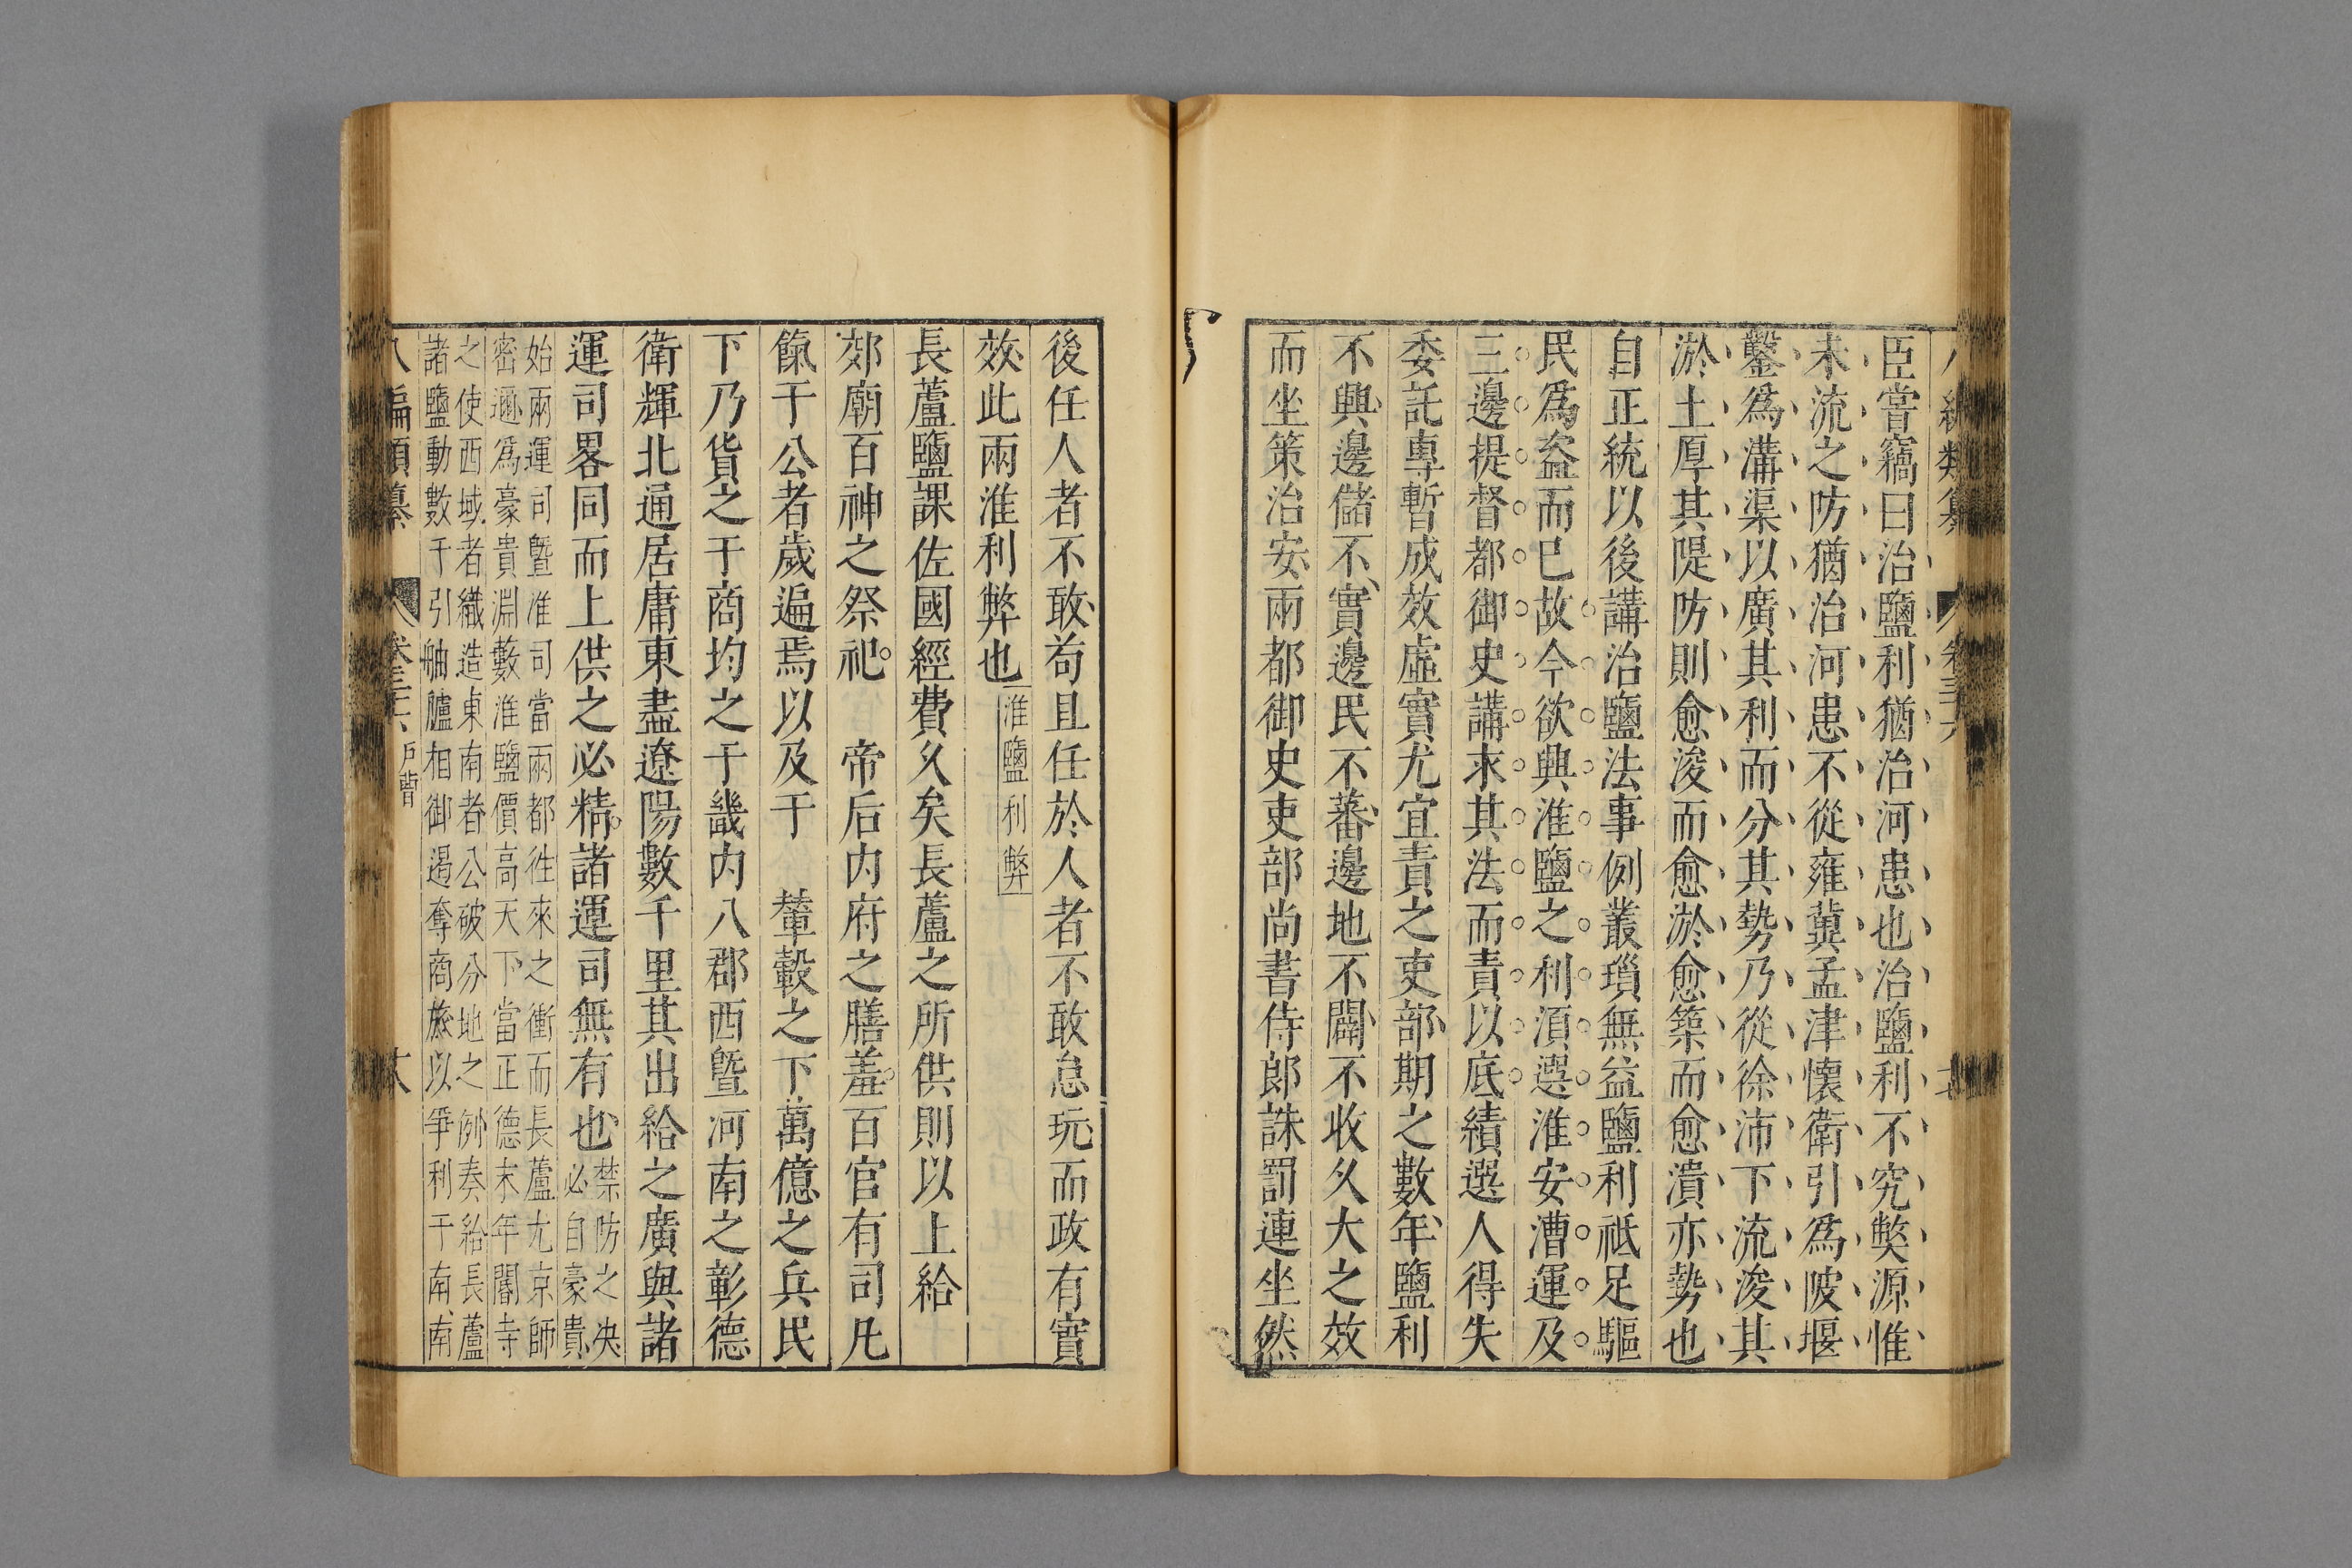 臣嘗竊曰治鹽利猶治河患也治鹽利不究獘源惟
末流之防猶治河患不從雍冀孟津懷衛引爲陂堰
鑿爲溝渠以廣其利而分其勢乃從徐沛下流浚其
淤土厚其隄防則愈浚而愈淤愈築而愈潰亦勢也
自正統以後講治鹽法事例叢瑣無益鹽利祗足驅
民爲盜而已故今欲興淮鹽之利湏選淮安漕運及
三邊提督都御史講求其法而責以底績選人得失
委託專暫成效虛實尤宜責之吏部期之數年鹽利
不興邊儲不實邊民不蕃邊地不闢不收久大之效
而坐策治安兩都御史吏部尚書侍郎誅罰連坐然
後任人者不敢苟且任於人者不敢怠玩而政有實
效此兩淮利弊也 淮鹽利弊
長蘆鹽課佐國經費久矣長蘆之所供則以上給
郊廟百神之祭祀 帝后内府之膳羞百官有司凡
餼于公者歲遍焉以及于 輦轂之下萬億之兵民
下乃貨之于商均之于畿内八郡西暨河南之彰德
衛輝北通居庸東盡遼陽數千里其出給之廣與諸
運司畧同而上供之必精諸運司無有也 禁防之决
必自豪貴
始兩運司暨淮司當兩都徃來之衝而長蘆尤京師
密邇爲豪貴淵藪淮鹽價高天下當正德末年閹寺
之使西域者織造東南者公破分地之例奏給長蘆
諸鹽動數千引舳艫相御遏奪商旅以爭利于南南
八編類纂 卷三六 戸曹